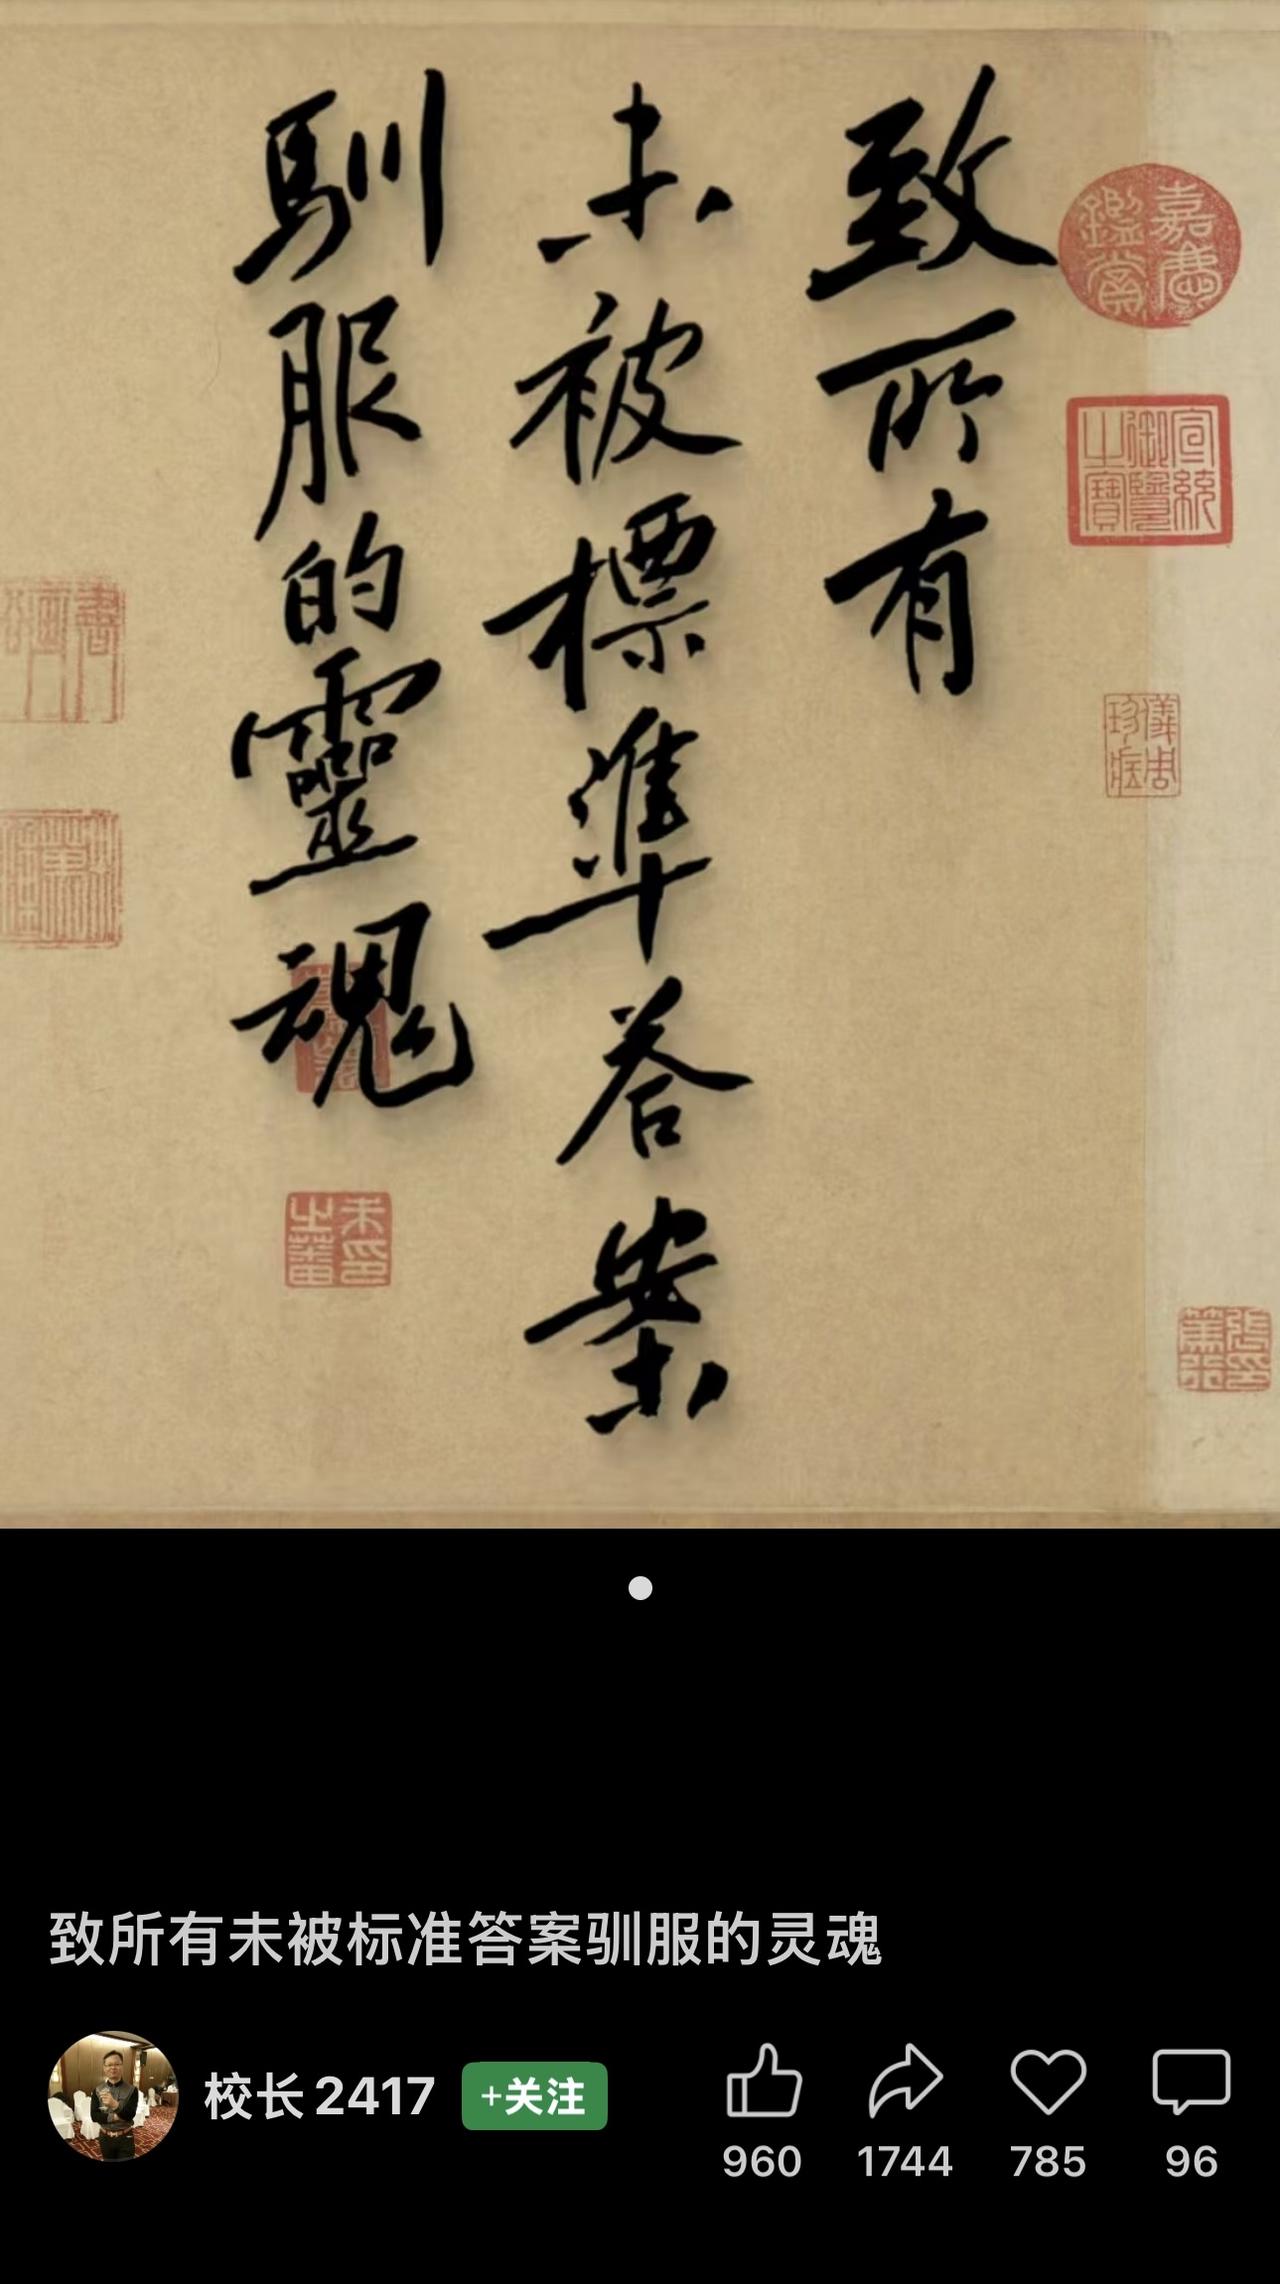 致所有
未被標準答案
馴服的靈魂
嘉慶鑑賞
宣統御覽之寶
致所有未被标准答案驯服的灵魂
校长2417
+关注
960
1744
785
96